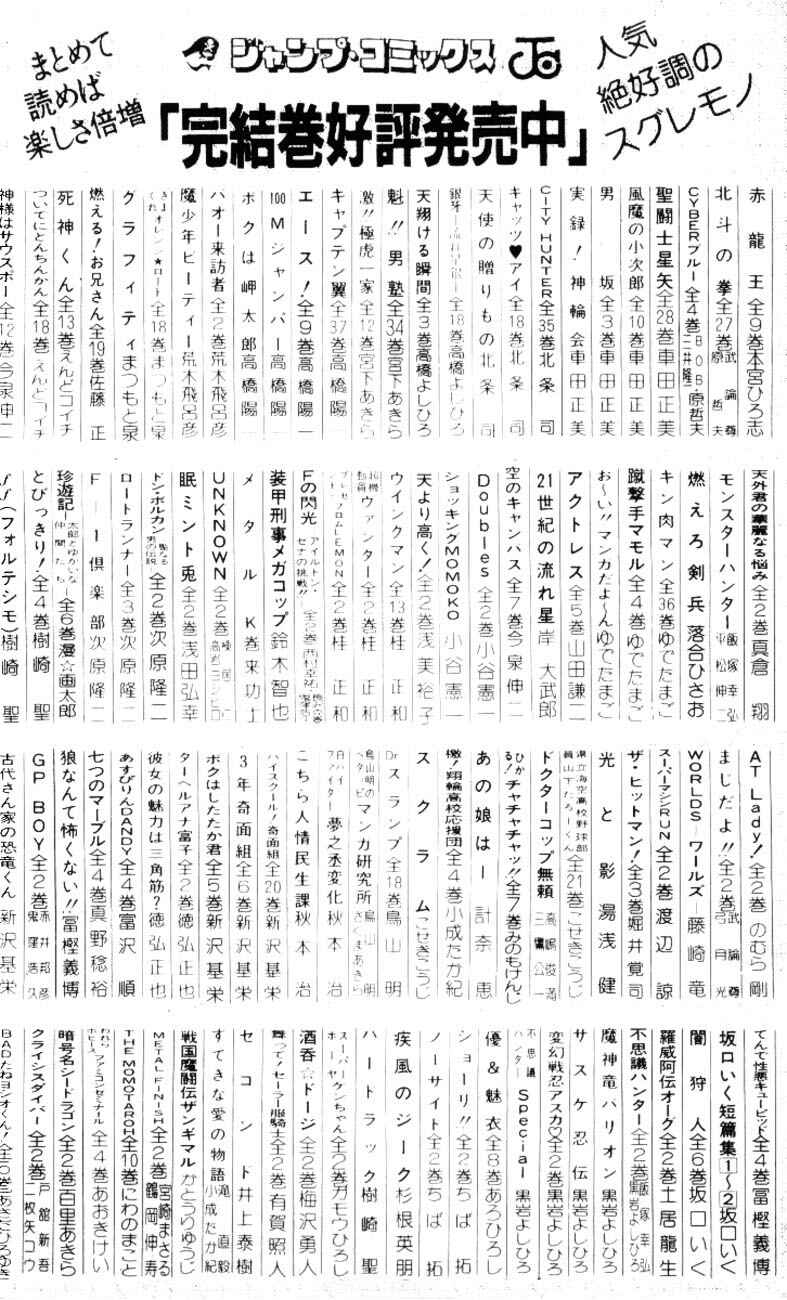 まとめて
読めば
楽しさ倍増
ジャンプ・コミックス
人気
絶好調の
スグレモノ
「完結巻好評発売中」
赤龍王 全9巻 本宮ひろ志
北斗の拳 全27巻 武論尊 原哲夫
CYBERブルー 全4巻 BOB・原哲夫 三井隆一
聖闘士星矢 全28巻 車田正美
風魔の小次郎 全10巻 車田正美
男坂 全3巻 車田正美
実録!神輪会 車田正美
CITY HUNTER 全35巻 北条司
キャッツ♥アイ 全18巻 北条司
天使の贈りもの 北条司
全18巻 高橋よしひろ
天翔ける瞬間 全3巻 高橋よしひろ
魁!!男塾 全34巻 宮下あきら
激!!極虎一家 全12巻 宮下あきら
キャプテン翼 全37巻 高橋陽一
エース! 全9巻 高橋陽一
100Mジャンパー 高橋陽一
ボクは岬太郎 高橋陽一
バオー来訪者 全2巻 荒木飛呂彦
魔少年ビーティー 荒木飛呂彦
きまぐれオレンジ★ロード 全18巻 まつもと泉
グラフィティ まつもと泉
燃える!お兄さん 全19巻 佐藤正
死神くん 全13巻 えんどコイチ
ついでにとんちんかん 全18巻 えんどコイチ
神様はサウスポー 全12巻 今泉伸二
天外君の華麗なる悩み 全2巻 真倉翔
モンスターハンター 飯塚幸弘 平松伸二
燃えろ剣兵 落合ひさお
キン肉マン 全36巻 ゆでたまご
蹴撃手マモル 全4巻 ゆでたまご
お〜い!!マンカだよ〜ん ゆでたまご
アクトレス 全5巻 山田謙二
21世紀の流れ星 岸大武郎
空のキャンバス 全7巻 今泉伸二
Doubles 全2巻 小谷憲一
ショッキングMOMOKO 小谷憲一
天より高く! 全2巻 浅美裕子
ウイングマン 全13巻 桂正和
ヴァンダー 全2巻 桂正和
プレゼント・フロムLEMON 全2巻 桂正和
Fの閃光 アイルトン・セナの挑戦!! 全2巻 西村幸祐
装甲刑事メガコップ 鈴木智也
メタルK 巻来功士
UNKNOWN 全2巻
眠兎 ミント 全2巻 浅田弘幸
ドン・ボルカン 聖なる男の伝説 全2巻 次原隆二
ロートランナー 全3巻 次原隆二
F1倶楽部 次原隆二
珍遊記 太郎とゆかいな仲間たち 全6巻 漫☆画太郎
とびっきり! 全4巻 樹崎聖
ff(フォルテシモ) 樹崎聖
AT Lady! 全2巻 のむら剛
まじだよ!! 全2巻 武論尊 弓月光
WORLDS—ワールズ— 藤崎竜
スーパーマシンRUN 全2巻 渡辺諒
ザ・ヒットマン! 全3巻 堀井覚司
光と影 湯浅健
県立海空高校野球部員山下たろーくん 全21巻 こせきこうじ
ドクターコップ無頼 高嶋俊満 三鷹公一
ひかる!チャチャチャッ!! 全7巻 みのもけんじ
あの娘は— 計奈恵
檄!翔輪高校応援団 全4巻 小成たか紀
スクラム こせきこうじ
Dr.スランプ 全18巻 鳥山明
鳥山明のヘタッピマンガ研究所 鳥山明 さくまあきら
白バイファイター夢之丞変化 秋本治
こちら人情民生課 秋本治
ハイスクール!奇面組 全20巻 新沢基栄
3年奇面組 全6巻 新沢基栄
ボクはしたたか君 全5巻 新沢基栄
ターヘルアナ富子 全2巻 徳弘正也
彼女の魅力は三角筋? 徳弘正也
あすぴりんDANDY 全4巻 富沢順
七つのマーブル 全4巻 真野稔裕
狼なんて怖くない!! 富樫義博
GP BOY 全2巻 赤井邦彦 鬼窪浩久
古代さん家の恐竜くん 新沢基栄
てんで性悪キューピッド 全4巻 富樫義博
坂口いく短篇集①〜② 坂口いく
闇狩人 全6巻 坂口いく
羅威阿伝オーグ 全2巻 土居龍生
不思議ハンター 全2巻 飯塚幸弘 黒岩よしひろ
魔神竜バリオン 黒岩よしひろ
サスケ忍伝 黒岩よしひろ
変幻戦忍アスカ 全2巻 黒岩よしひろ
不思議ハンターSpecial 黒岩よしひろ
優&魅衣 全8巻 あろひろし
ショーリ!! 全2巻 ちば拓
ノーサイド 全2巻 ちば拓
疾風のジーク 杉根英朋
ハードラック 樹崎聖
スーパーボーヤケンちゃん 全2巻 ガモウひろし
酒呑☆ドージ 全2巻 梅沢勇人
舞って!セーラー服騎士 全2巻 有賀照人
セコンド 井上泰樹
すてきな愛の物語 滝直毅 小成たか紀
戦国魔闘伝ザンギマル かとうりゅうじ
METAL FINISH 全2巻 宮崎まさる 鶴岡伸寿
THE MOMOTAROH 全10巻 にわのまこと
われらホビーズファミコンゼミナール 全4巻 あおきけい
暗号名シードラゴン 全2巻 百里あきら
クライシスダイバー 全2巻 戸舘新吾 二枚矢コウ
BADだねヨシオくん!